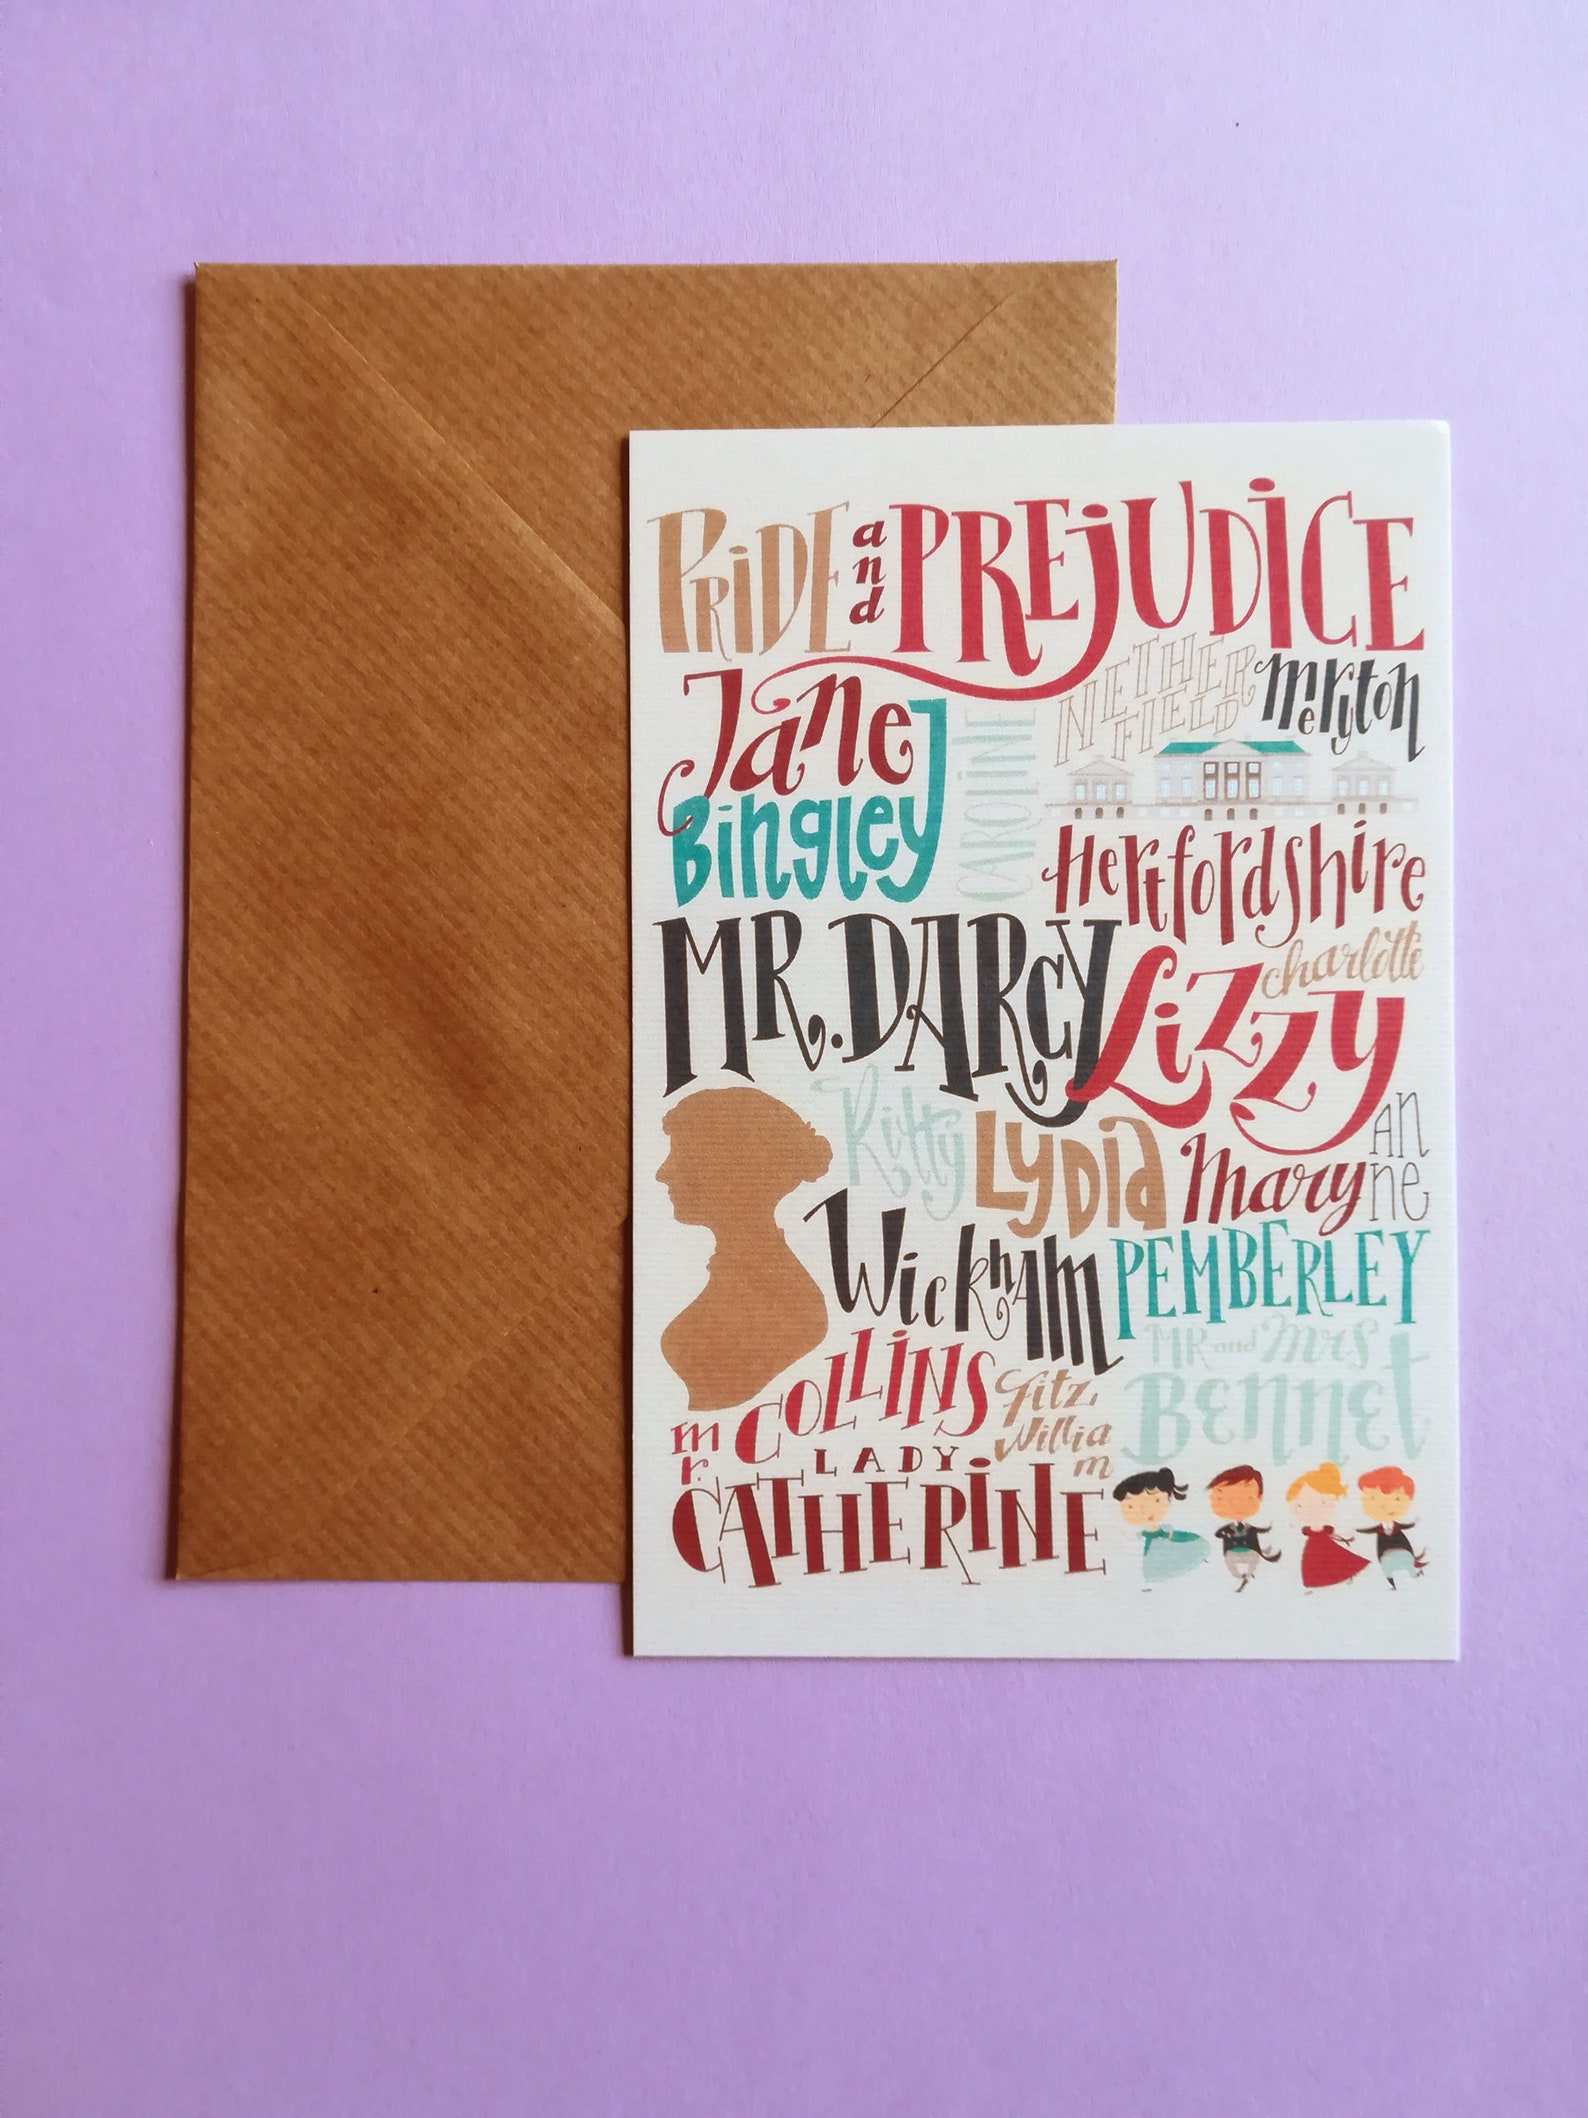 PRiDE and PREjUDiCE
Jane
NETHER
FIELD
Meryton
Bingley
CAROLiNE
Hertfordshire
MR. DARCY
Lizzy
charlotte
Kitty
Lydia
Mary
AN
Ne
Wickham
PEMBERLEY
MR and Mrs
Bennet
mr. COLLiNS
Fitz
William
LADY
CATHERiNE